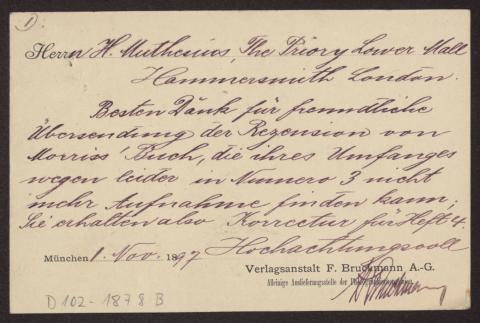 1)
Herrn H. Muthesius, The Priory Lower Mall
Hammersmith London.
Besten Dank für freundliche
Übersendung der Rezension von
Morriss' Buch, die ihres Umfanges
wegen leider in Numero 3 nicht
mehr Aufnahme finden kann;
Sie erhalten also Korrectur für Heft 4.
Hochachtungsvoll
München 1. Nov. 1897
Verlagsanstalt F. Bruckmann A.-G.
Alleinige Auslieferungsstelle der
Bruckmann
D 102-1878 B